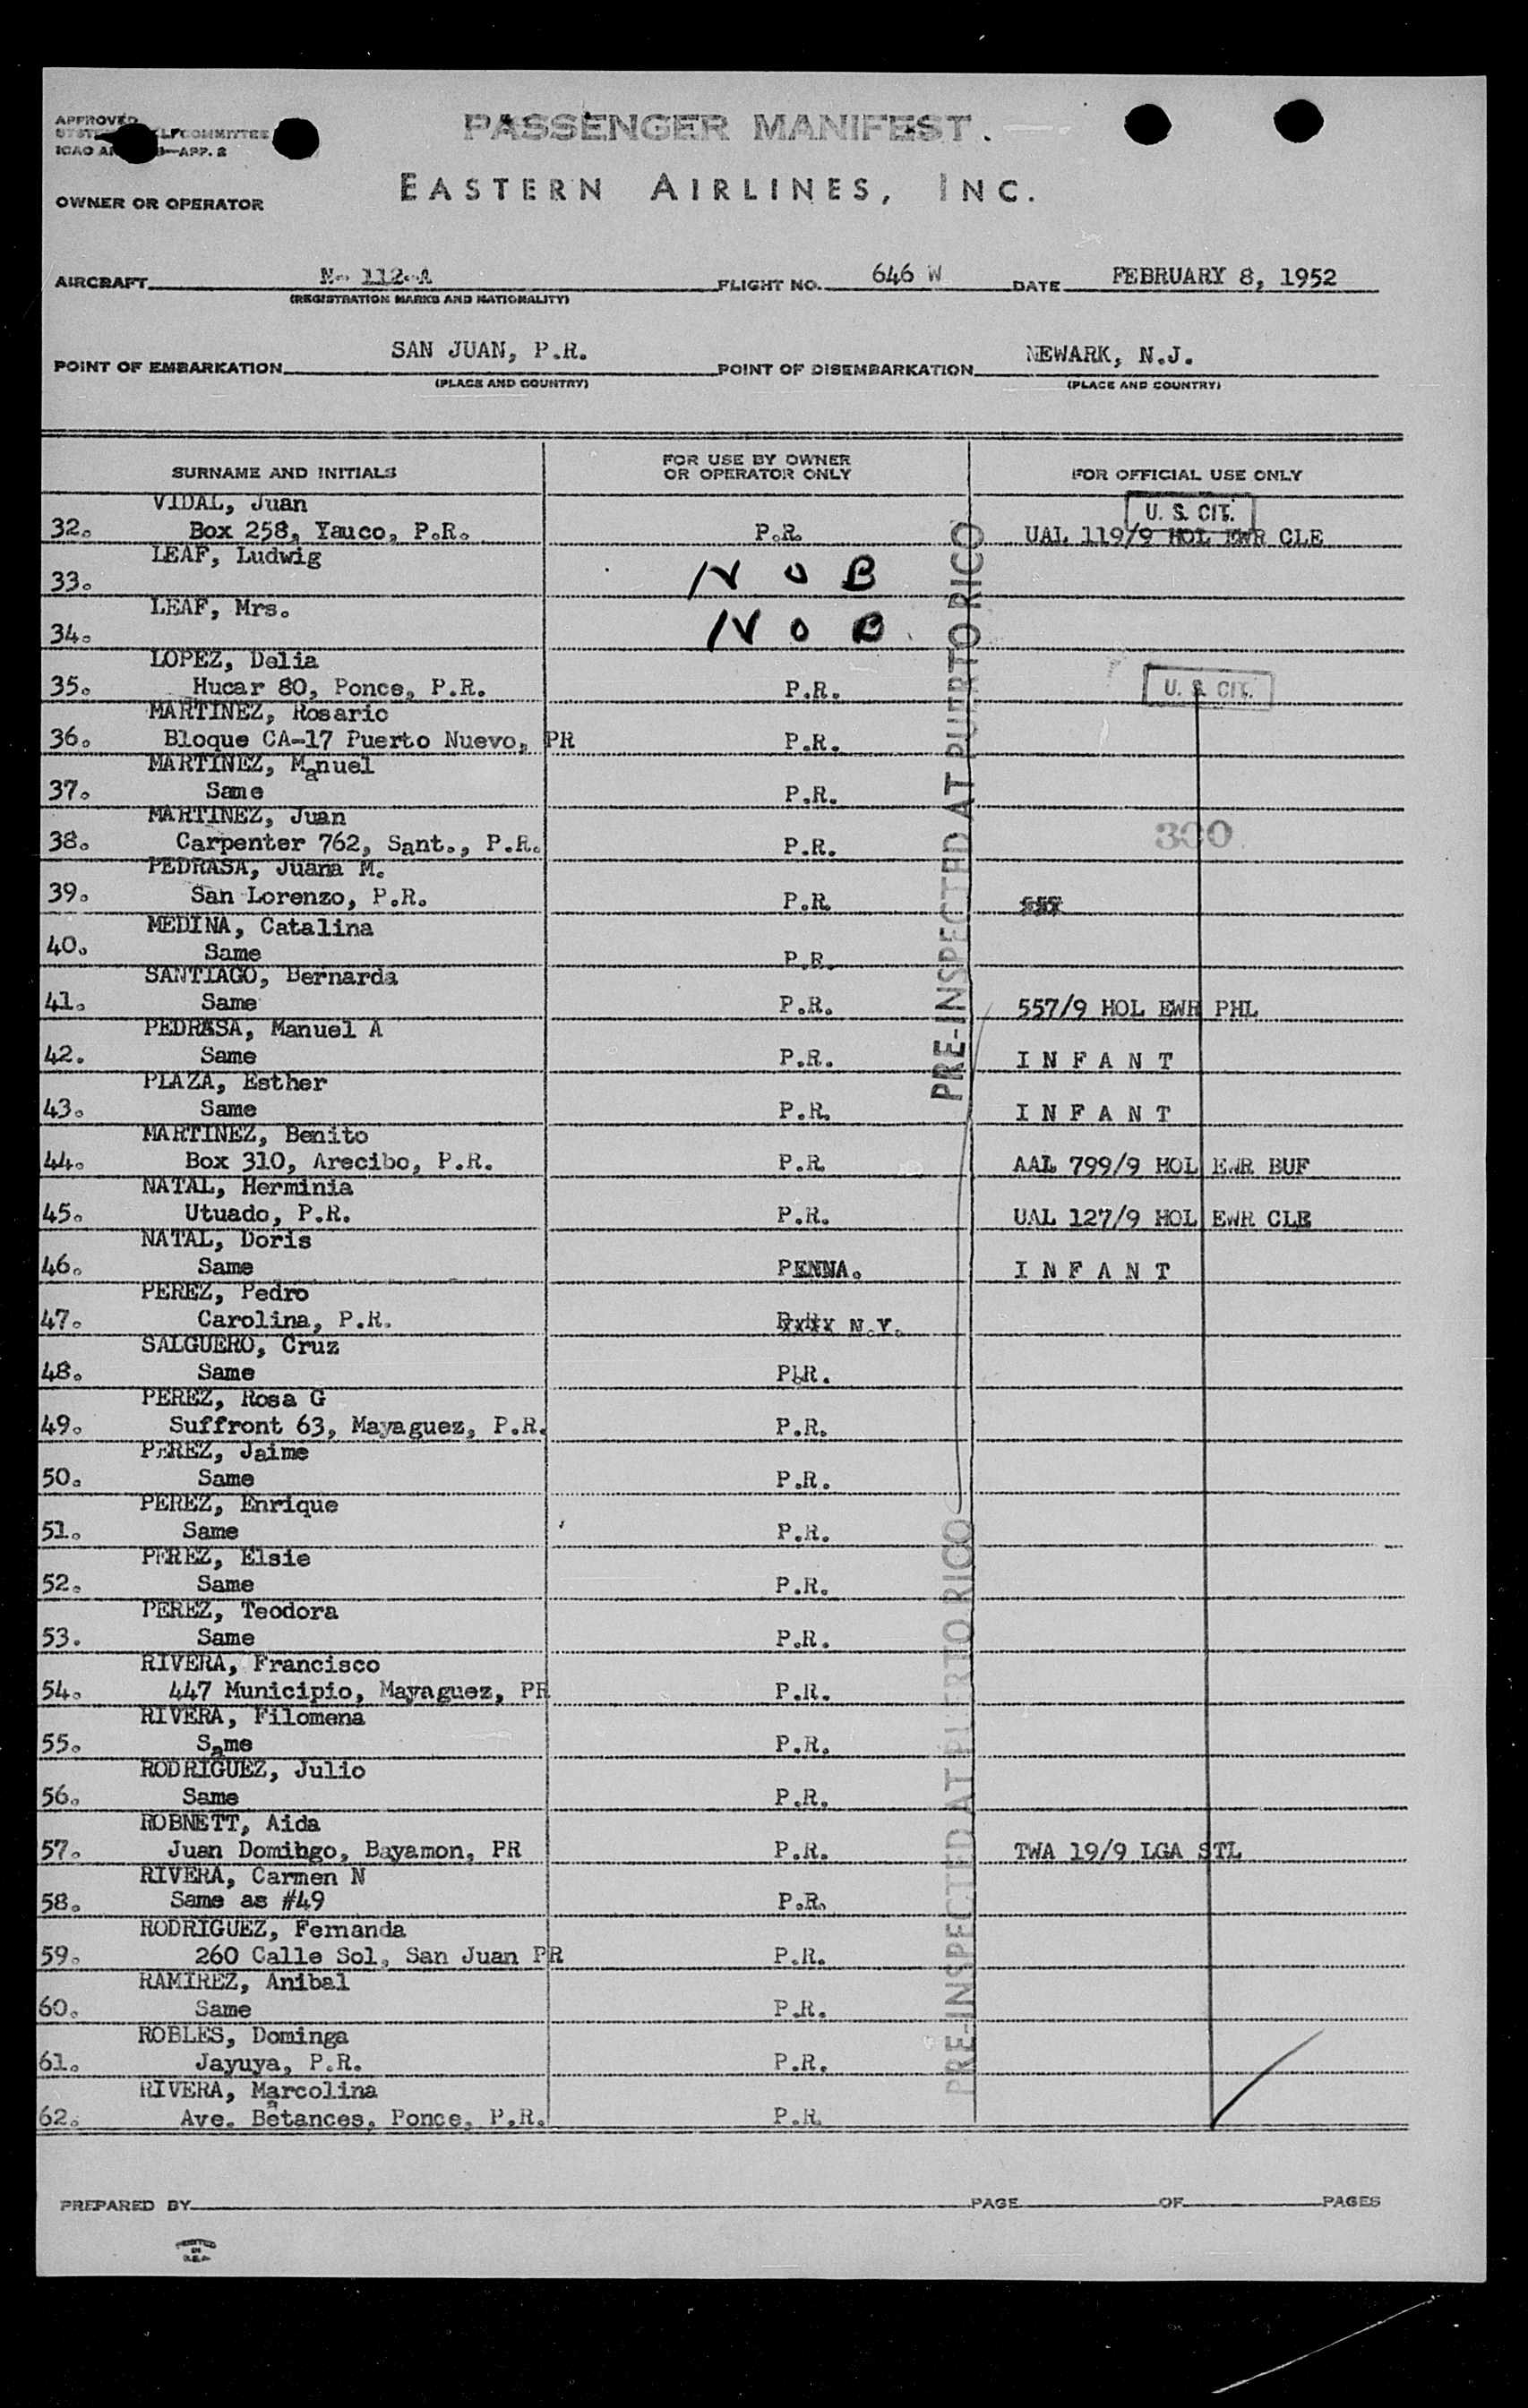 APPROVED
COMMITTEE
ICAO —APP. 2
PASSENGER MANIFEST.
EASTERN AIRLINES, INC.
OWNER OR OPERATOR
AIRCRAFT N- 112-A FLIGHT NO. 646 W DATE FEBRUARY 8, 1952
(REGISTRATION MARKS AND NATIONALITY)
POINT OF EMBARKATION SAN JUAN, P.R. POINT OF DISEMBARKATION NEWARK, N.J.
(PLACE AND COUNTRY) (PLACE AND COUNTRY)
SURNAME AND INITIALS FOR USE BY OWNER OR OPERATOR ONLY FOR OFFICIAL USE ONLY
VIDAL, Juan U. S. CIT.
32. Box 258, Yauco, P.R. P.R. UAL 119/9 HOL EWR CLE
LEAF, Ludwig
33. N O B
LEAF, Mrs.
34. N O B
LOPEZ, Delia
35. Hucar 80, Ponce, P.R. P.R. U. S. CIT.
MARTINEZ, Rosario
36. Bloque CA-17 Puerto Nuevo, PR P.R.
MARTINEZ, Manuel
37. Same P.R.
MARTINEZ, Juan
38. Carpenter 762, Sant., P.R. P.R. 300
PEDRASA, Juana M.
39. San Lorenzo, P.R. P.R.
MEDINA, Catalina
40. Same P.R.
SANTIAGO, Bernarda
41. Same P.R. 557/9 HOL EWR PHL
PEDRASA, Manuel A
42. Same P.R. I N F A N T
PLAZA, Esther
43. Same P.R. I N F A N T
MARTINEZ, Benito
44. Box 310, Arecibo, P.R. P.R. AAL 799/9 HOL EWR BUF
NATAL, Herminia
45. Utuado, P.R. P.R. UAL 127/9 HOL EWR CLE
NATAL, Doris
46. Same PENNA. I N F A N T
PEREZ, Pedro
47. Carolina, P.R. N.Y.
SALGUERO, Cruz
48. Same P.R.
PEREZ, Rosa G
49. Suffront 63, Mayaguez, P.R. P.R.
PEREZ, Jaime
50. Same P.R.
PEREZ, Enrique
51. Same P.R.
PEREZ, Elsie
52. Same P.R.
PEREZ, Teodora
53. Same P.R.
RIVERA, Francisco
54. 447 Municipio, Mayaguez, PR P.R.
RIVERA, Filomena
55. Same P.R.
RODRIGUEZ, Julio
56. Same P.R.
ROBNETT, Aida
57. Juan Domihgo, Bayamon, PR P.R. TWA 19/9 LGA STL
RIVERA, Carmen N
58. Same as #49 P.R.
RODRIGUEZ, Fernanda
59. 260 Calle Sol, San Juan PR P.R.
RAMIREZ, Anibal
60. Same P.R.
ROBLES, Dominga
61. Jayuya, P.R. P.R.
RIVERA, Marcolina
62. Ave. Betances, Ponce, P.R. P.R.
PRE-INSPECTED AT PUERTO RICO
PRE-INSPECTED AT PUERTO RICO
PREPARED BY PAGE OF PAGES
PRINTED
IN
U.S.A.